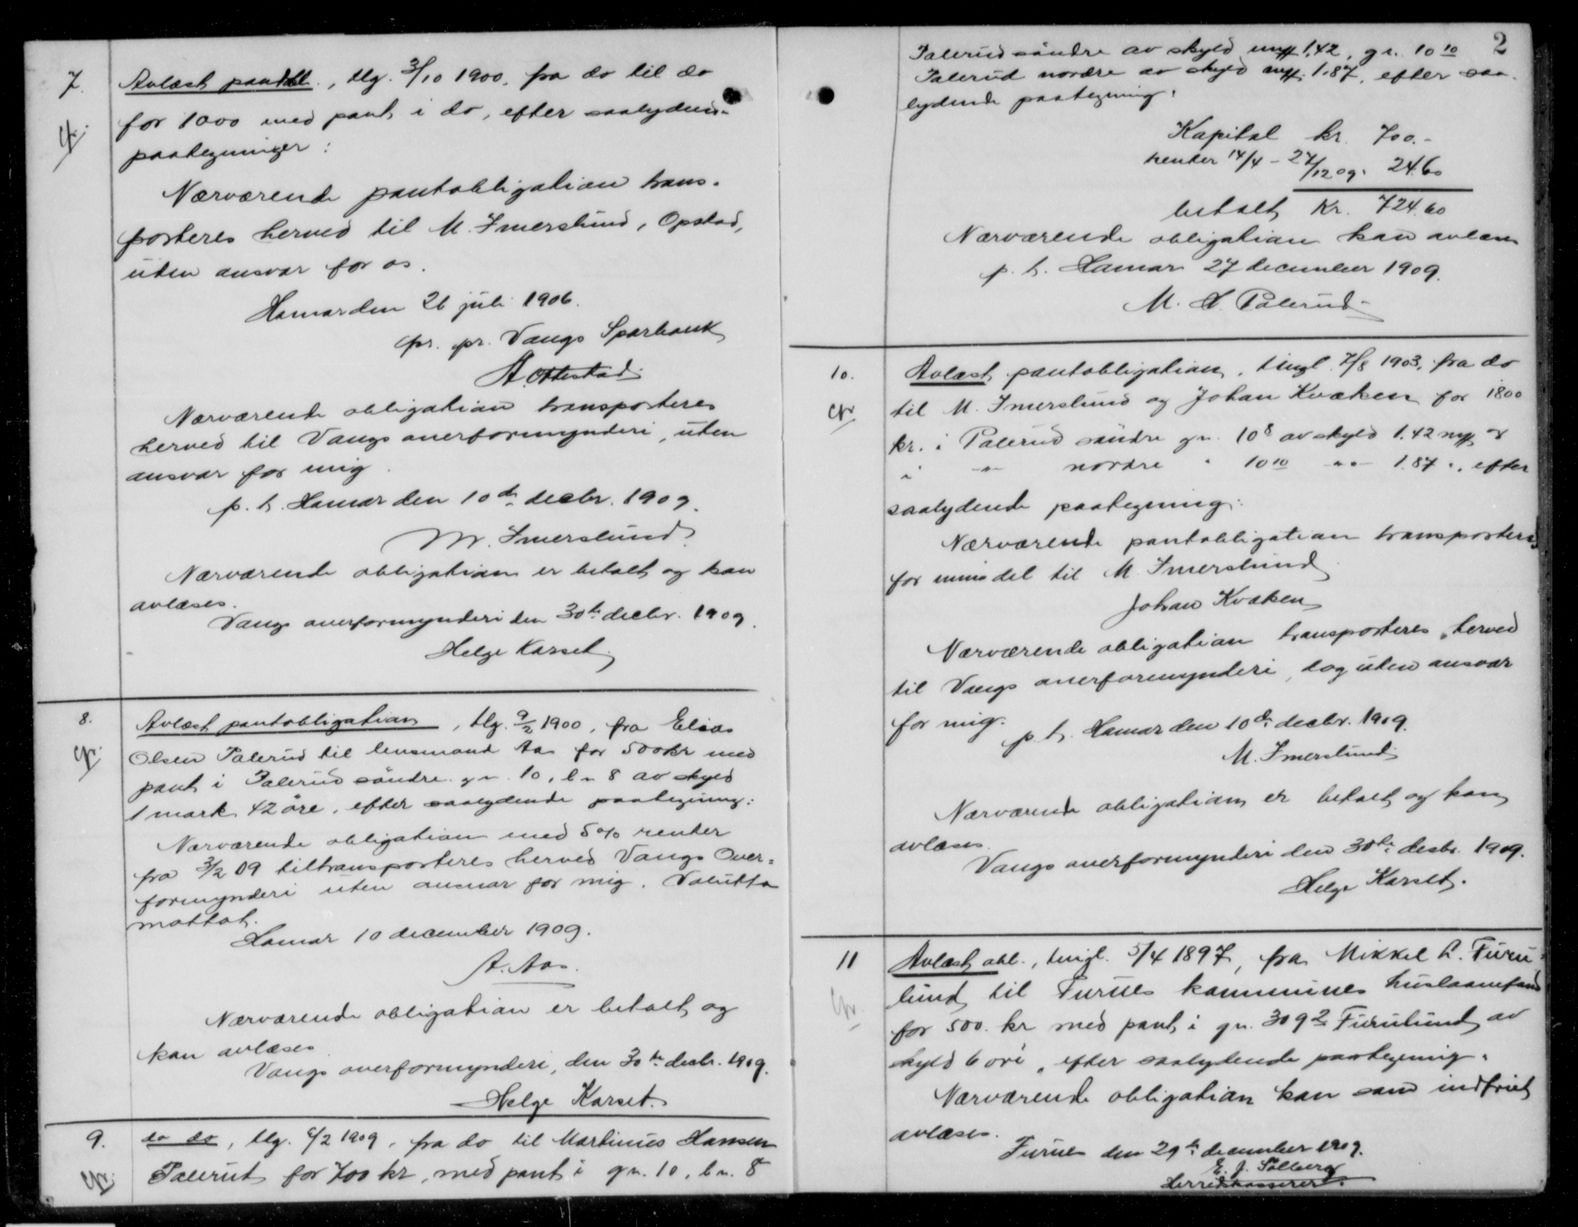 7. Avlæst pantobl., tlg. 3/10 1900, fra do til do
for 1000 med pant i do, efter saalydende
paategninger:
Nærværende pantobligation trans-
porteres herved til M. Imerslund, Opstad,
uten ansvar for os.
Hamar den 26 juli 1906.
pr. pr. Vangs Sparbank
A. Otterstad
Nærværende obligation transporteres
herved til Vangs overformynderi, uten
ansvar for mig.
p. t. Hamar den 10de decbr. 1909.
M. Imerslund.
Nærværende obligation er betalt og kan
avlæses.
Vangs overformynderi den 30te decbr. 1909.
Helge Karset.
8. Avlæst pantobligation, tlg. 9/2 1900, fra Elias
Olsen Palerud til lensmand Aas for 500 kr med
pant i Palerud söndre gn. 10, bn 8 av skyld
1 mark 42 öre, efter saalydende paategning:
Nærværende obligation med 5% renter
fra 3/2 09 tiltransporteres herved Vangs Over-
formynderi uten ansvar for mig. Valutta
mottat.
Hamar 10 december 1909.
A. Aas.
Nærværende obligation er betalt og
kan avlæses.
Vangs overformynderi, den 30te decbr. 1909.
Helge Karset.
9. do do, tlg. 6/2 1909, fra do til Martinus Hansen
Palerut for 700 kr, med pant i gn. 10, bn. 8
2
Palerud söndre av skyld 1.42, gn. 10 10
Palerud nordre av skyld 1.87, efter saa-
lydende paategning:
Kapital kr. 700.-
renter 14/4 - 27/12 09. 24.60
betalt Kr. 724.60
Nærværende obligation kan avlæses
p. t. Hamar 27 december 1909.
M. H. Palerud
10. Avlæst pantobligation, tingl. 7/8 1903, fra do
til M. Imerslund og Johan Kvaken for 1800
kr. i Palerud söndre gn. 10 8 av skyld 1.42 og
i " nordre " 10 10 " " 1.87, efter
saalydende paategning:
Nærværende pantobligation transporteres
for min del til M. Imerslund
Johan Kvaken
Nærværende obligation transporteres herved
til Vangs overformynderi, dog uten ansvar
for mig.
p. t. Hamar den 10de decbr. 1909.
M. Imerslund
Nærværende obligation er betalt og kan
avlæses.
Vangs overformynderi den 30te decbr. 1909.
Helge Karset.
11 Avlæst obl., tingl. 5/4 1897, fra Mikkel A. Furu-
lund til Furnes kommunes huslaanefond
for 500 kr med pant i gn. 30 92 Furulund av
skyld 6 öre, efter saalydende paategning:
Nærværende obligation kan som indfriet
avlæses.
Furnes den 29te december 1909.
E. J. Solberg
Herredskasserer.